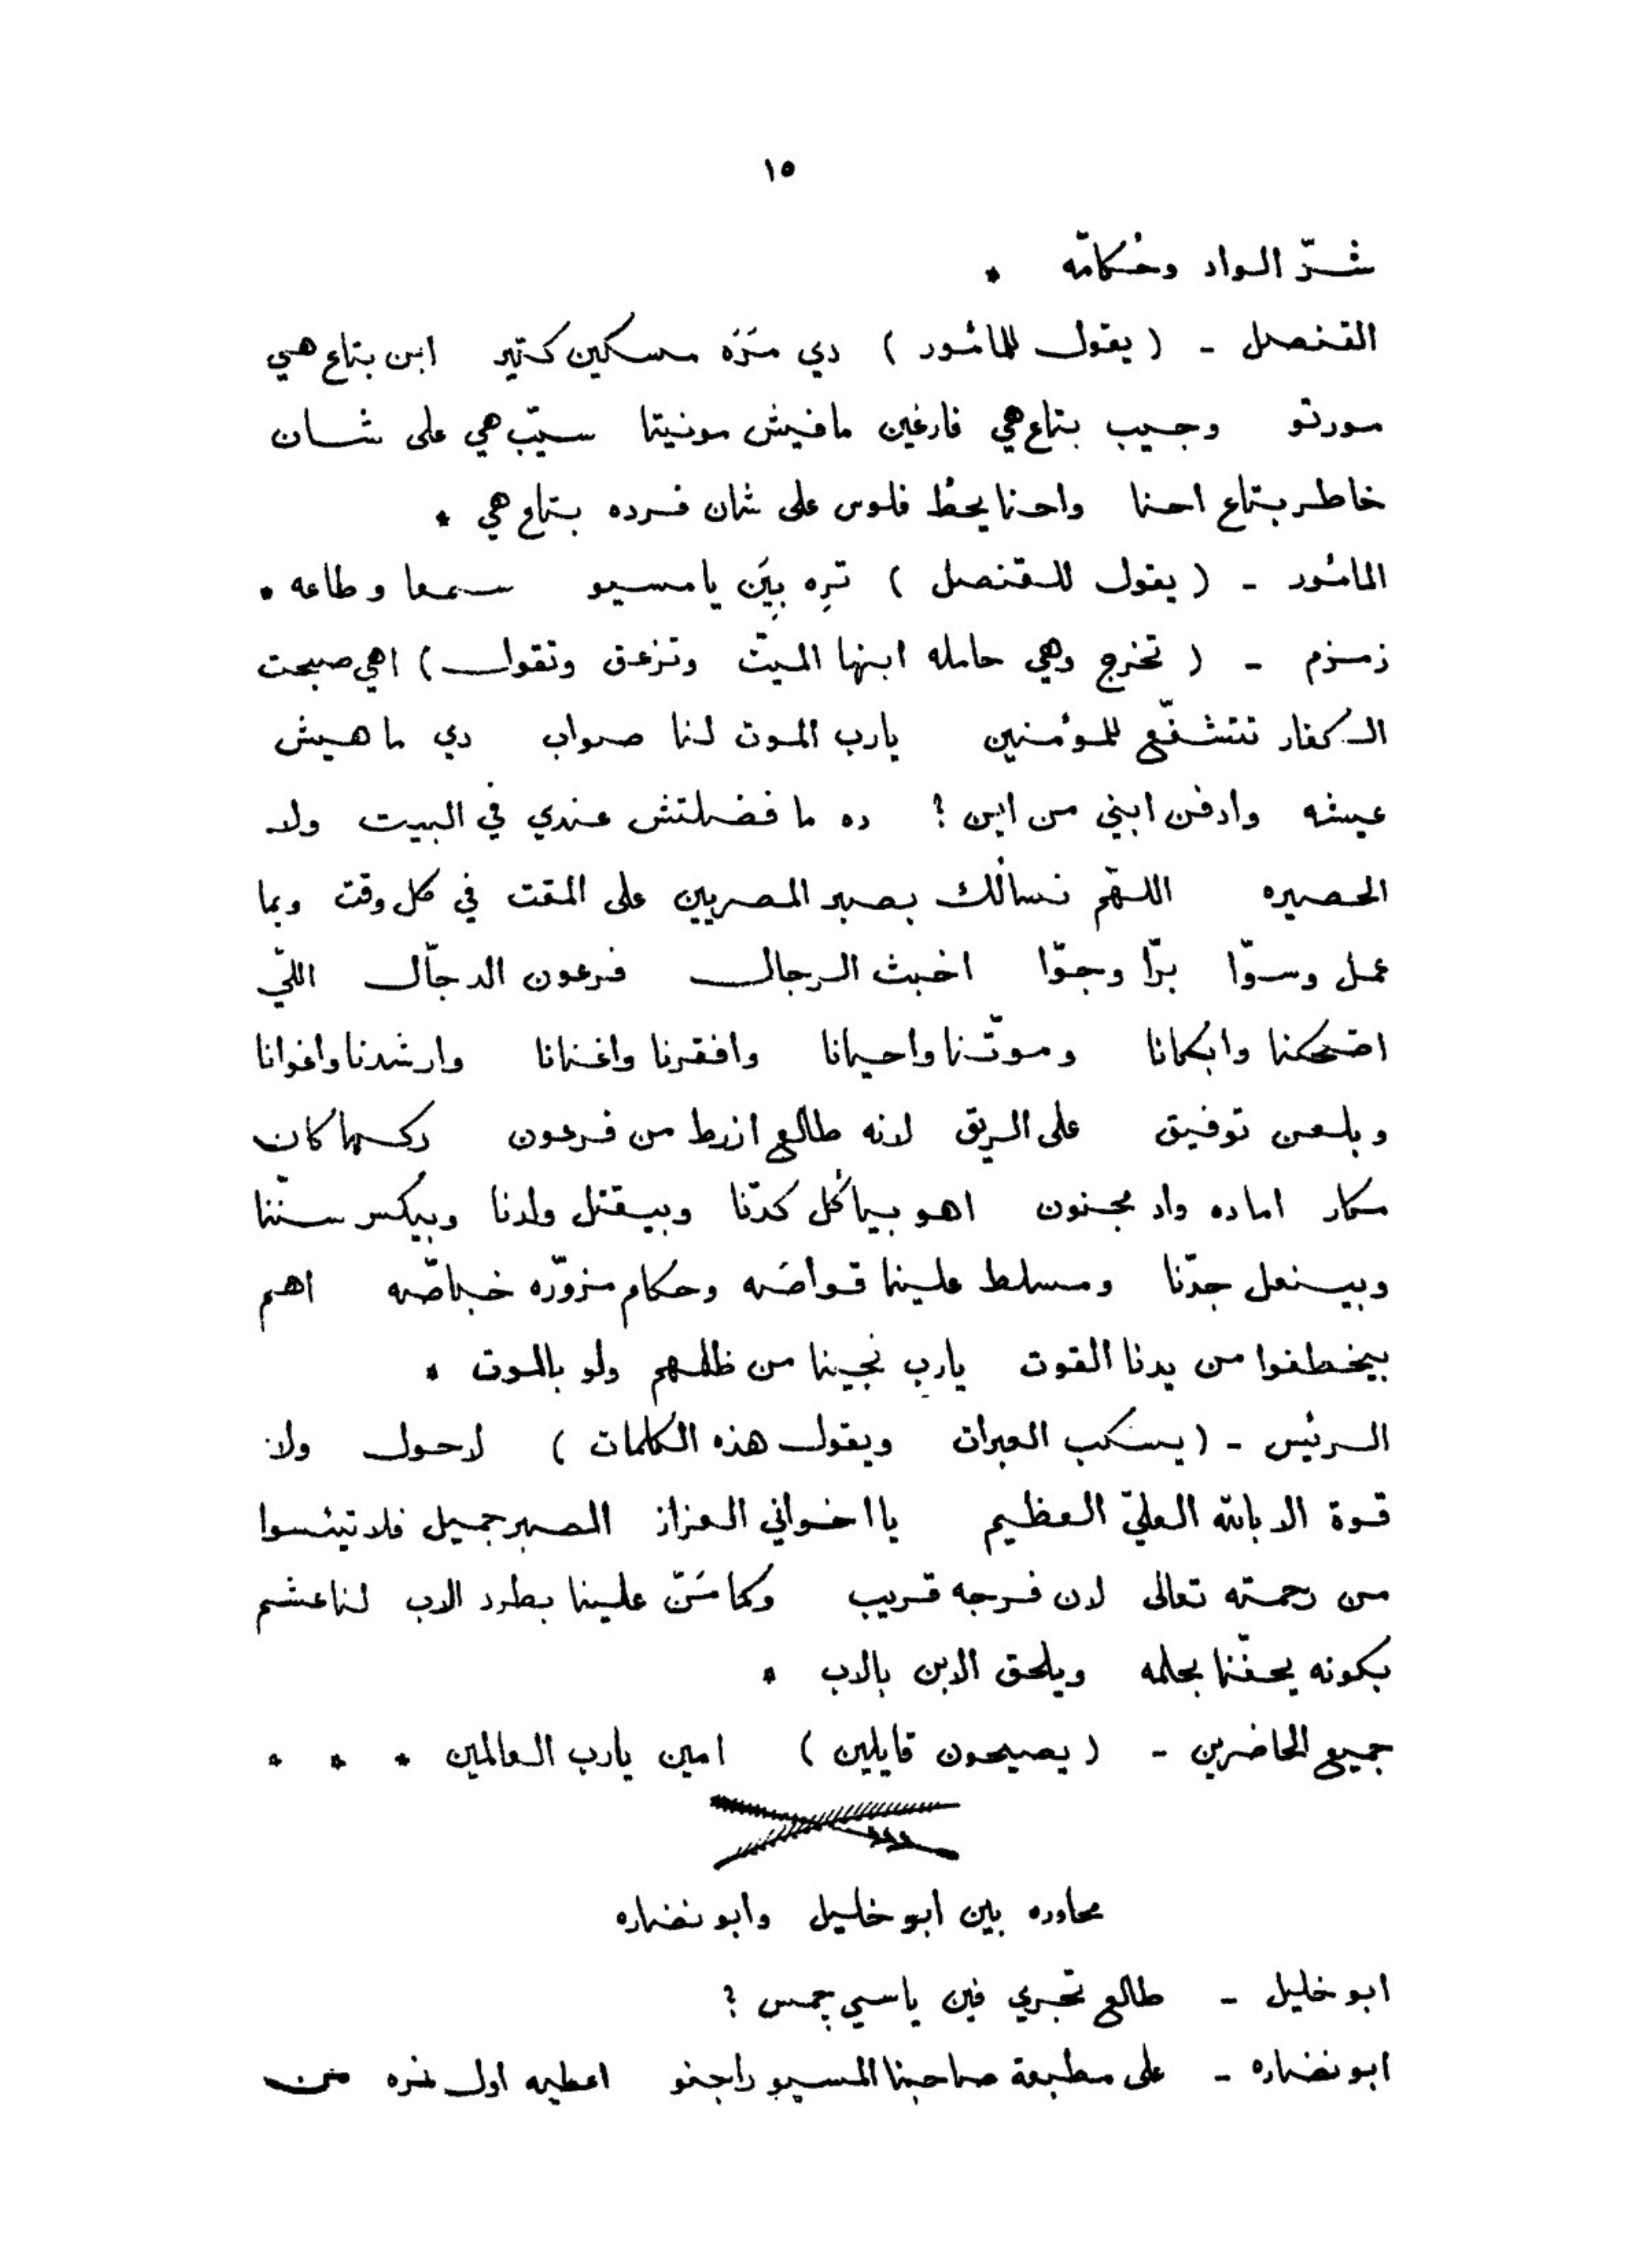 ١٥
شرّ الواد وحُكّامه *
القنصل - (يقول للمأمور) دي مَرَه مسكين كتير ابن بتاع هي
مورتو وجيب بتاع هي فارغين مافيش مونيتا سيّب هي على شان
خاطر بتاع احنا واحنا يحُط فلوس على شان فرده بتاع هي *
المأمور - (يقول للقنصل) تره بيَن يا مسيو سمعا وطاعه *
زمزم - (تخرج وهي حامله ابنها الميت وتزعق وتقول) اهي صبحت
الكفار تتشفّع للمؤمنين يارب الموت لنا صواب دي ماهيش
عيشه وادفن ابني من اين ؟ ده ما فضلتش عندي في البيت ولا
الحصيره اللهّم نسألك بصبر المصريين على المقت في كل وقت وبما
عمل وسوّا برّا وجوّا اخبث الرجال فرعون الدجّال اللّي
اضحكنا وابكانا وموّتنا واحيانا وافقرنا واغنانا وارشدنا واغوانا
وبلعن توفيق على الريق لانه طالع ازرط من فرعون ركسها كان
مكار اما ده واد مجنون اهو بيأكل كدّنا وبيقتل ولدنا وبيكسر ستّنا
وبينعل جدّنا ومسلط علينا قواصَه وحكام مزوّره خباصّه اهم
بيخطفوا من يدنا القوت يارب نجينا من ظلمهم ولو بالموت *
الرئيس - (يسكب العبرات ويقول هذه الكلمات) لاحول ولا
قوة الا بالله العليّ العظيم يا اخواني العزاز الصبر جميل فلا تيئسوا
من رحمته تعالى لان فرجه قريب وكما مَنّ علينا بطرد الاب لنا عشم
بكونه يحفّنا بحلمه ويلحق الابن بالاب *
جميع الحاضرين - (يصيحون قايلين) امين يارب العالمين * * *
محاوره بين ابو خليل وابو نضاره
ابو خليل - طالع تجري فين ياسي چمس ؟
ابو نضاره - على مطبعة صاحبنا المسيو راجنو اعطيه اول نمره من